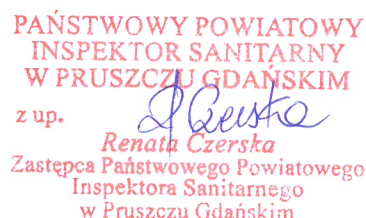 PAŃSTWOWY POWIATOWY
INSPEKTOR SANITARNY
W PRUSZCZU GDAŃSKIM
z up.
R Czerska
Renata Czerska
Zastępca Państwowego Powiatowego
Inspektora Sanitarnego
w Pruszczu Gdańskim